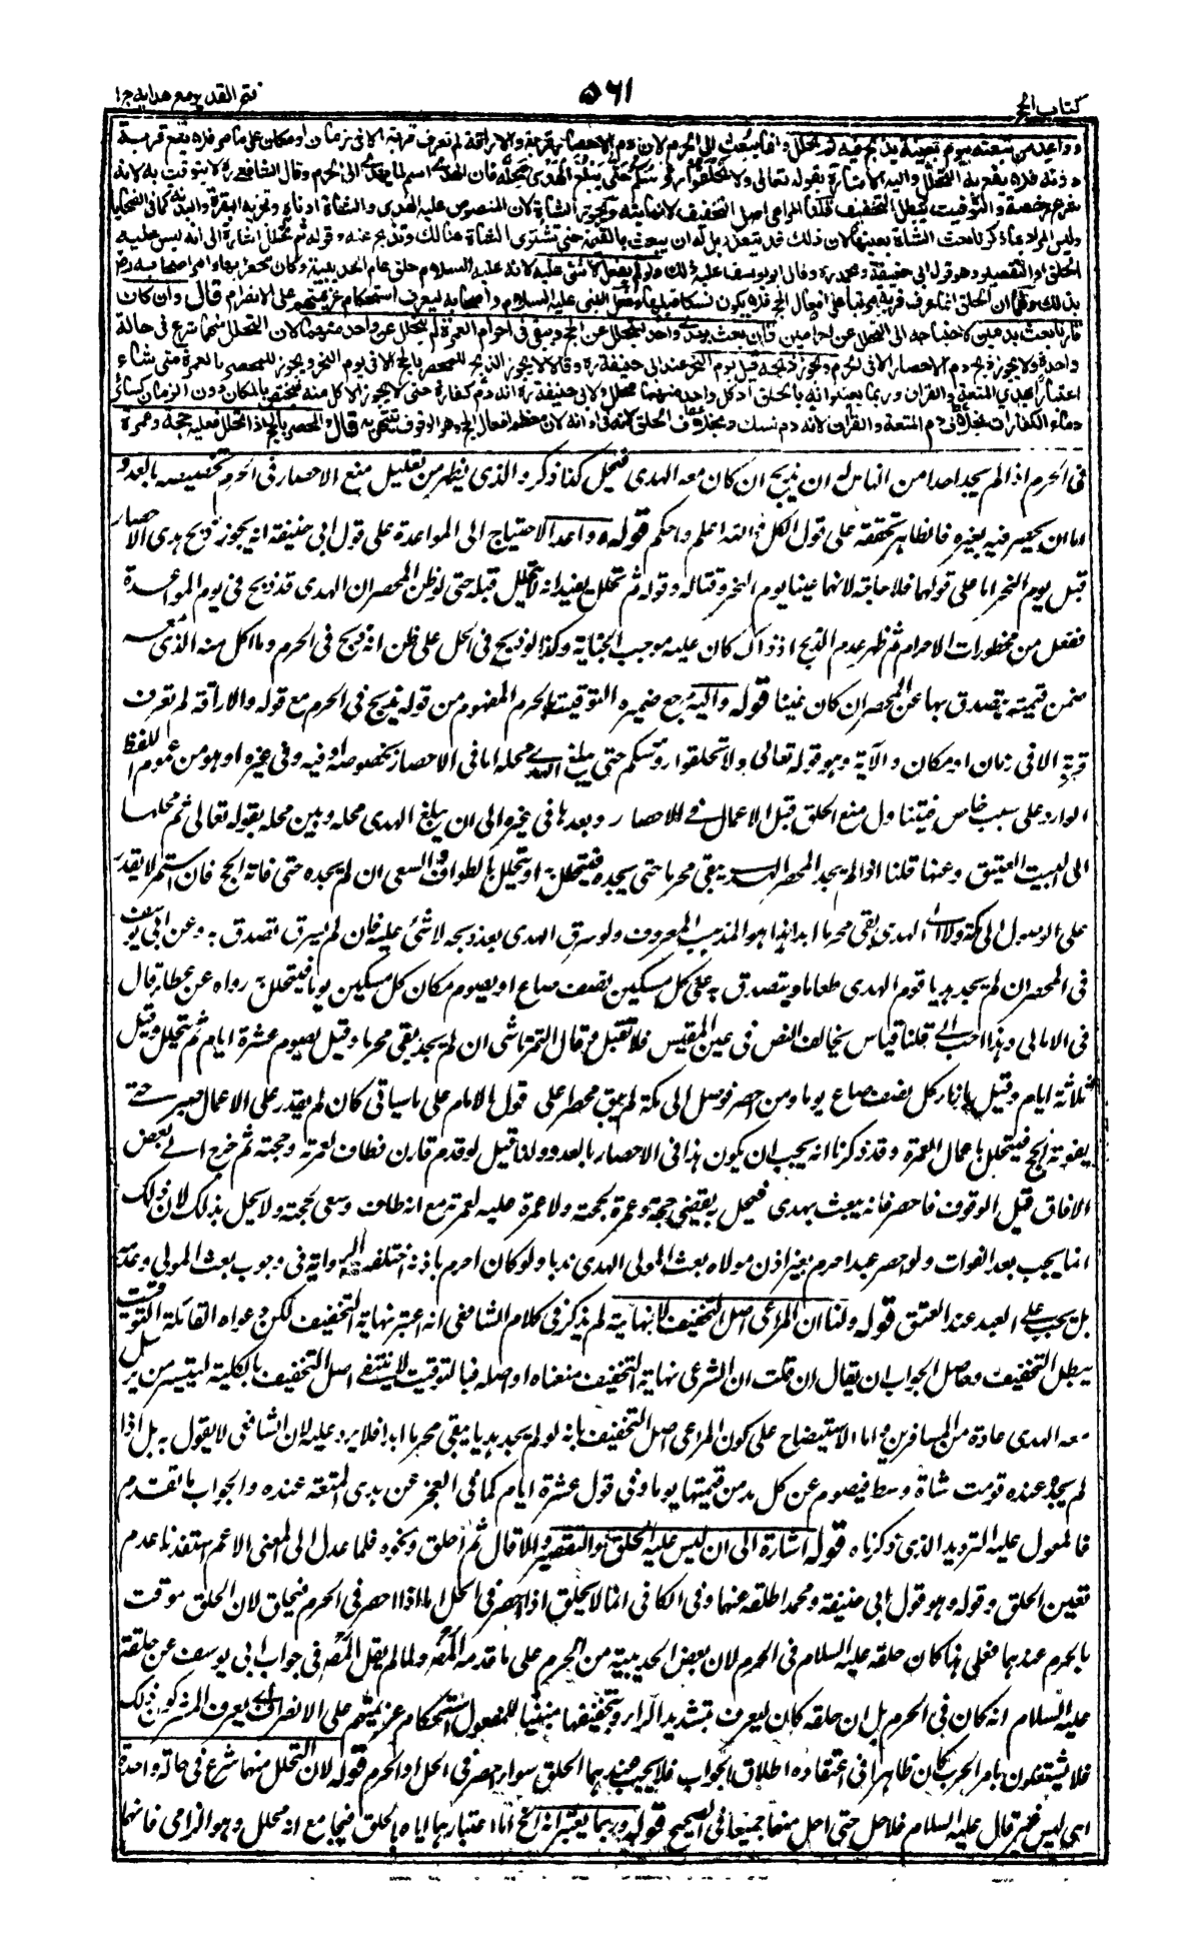 كتاب الحج
٥٦١
فتح القدير مع هدايه ج ١
وواعد من تبعثه بيوم بعينه يذبح فيه ثم تحلل وانما يبعث الى الحرم لان دم الاحصار قربة والاراقة لم تعرف قربة الا في زمان او مكان على ما مر فلا يقع قربة
دونه فلا يقع به التحلل واليه الاشارة بقوله تعالى ولا تحلقوا رؤسكم حتى يبلغ الهدي محله فان الهدي اسم لما يهدى الى الحرم وقال الشافعي رح لا يتوقت به لانه
شرع رخصة والتوقيت يبطل التخفيف قلنا المراعى اصل التخفيف لا نهايته وتجوز الشاة لان المنصوص عليه الهدي والشاة ادناه وتجزيه البقرة والبدنة كما في الضحايا
وليس المراد بما ذكرنا بعث الشاة بعينها لان ذلك قد يتعذر بل له ان يبعث بالقيمة حتى تشترى الشاة هنالك وتذبح عنه وقوله ثم تحلل اشارة الى انه ليس عليه
الحلق او التقصير وهو قول ابي حنيفة ومحمد رح وقال ابو يوسف عليه ذلك ولو لم يفعل لا شئ عليه لانه عليه السلام حلق عام الحديبية وكان محصرا بها وامر اصحابه رض
بذلك ولهما ان الحلق انما عرف قربة مرتبا على افعال الحج فلا يكون نسكا قبلها وفعل النبي عليه السلام واصحابه ليعرف استحكام عزيمتهم على الانصراف قال وان كان
قارنا بعث بدمين لاحتياجه الى التحلل عن احرامين فان بعث بهدي واحد ليتحلل عن الحج ويبقى في احرام العمرة لم يتحلل عن واحد منهما لان التحلل منهما شرع في حالة
واحدة ولا يجوز ذبح دم الاحصار الا في الحرم ويجوز ذبحه قبل يوم النحر عند ابي حنيفة رح وقالا لا يجوز الذبح للمحصر بالحج الا في يوم النحر ويجوز للمحصر بالعمرة متى شاء
اعتبارا بهدي المتعة والقران وربما يعتبرانه بالحلق اذ كل واحد منهما محلل ولابي حنيفة رح انه دم كفارة حتى لا يجوز الاكل منه فيختص بالمكان دون الزمان كسائر
دماء الكفارات بخلاف دم المتعة والقران لانه دم نسك وبخلاف الحلق لانه في اوانه لان معظم افعال الحج وهو الوقوف ينتهي به قال والمحصر بالحج اذا تحلل فعليه حجة وعمرة
في الحرم اذا لم يجد احدا من الناس له ان يذبح ان كان معه الهدي فيحل كذا ذكر والذي يظهر من تعليل منع الاحصار في الحرم تخصيصه بالعدو
اما ان احصر فيه بغيره فالظاهر تحققه على قول الكل والله اعلم واحكم قوله وواعد الاحتياج الى المواعدة على قول ابي حنيفة انه يجوز ذبح هدي الاحصار
قبل يوم النحر اما على قولهما فلا حاجة لانهما عينا يوم النحر وقتا له وقوله ثم تحلل يفيد انه لا يتحلل قبله حتى لو ظن المحصر ان الهدي قد ذبح في يوم المواعدة
ففعل من محظورات الاحرام ثم ظهر عدم الذبح اذ ذاك كان عليه موجب الجناية وكذا لو ذبح في الحل على ظن انه ذبح في الحرم وما اكل منه الذي معه
ضمن قيمته يتصدق بها عن المحصر ان كان غنيا قوله واليه يرجع ضميره التوقيت بالحرم المفهوم من قوله يذبح في الحرم مع قوله والاراقة لم تعرف
قربة الا في زمان او مكان والآية وهو قوله تعالى ولا تحلقوا رؤسكم حتى يبلغ الهدي محله اما في الاحصار بخصوصه او فيه وفي غيره او هو من عموم اللفظ
الوارد على سبب خاص فيتناول منع الحلق قبل الاعمال في الاحصار وبعدها في غيره الى ان يبلغ الهدي محله وبين محله بقوله تعالى ثم محلها
الى البيت العتيق وعنها قلنا اذا لم يجد المحصر الهدي بقي محرما حتى يجده فيتحلل به او يتحلل بالطواف والسعي ان لم يجده حتى فاته الحج فان استمر لا يقدر
على الوصول الى مكة ولا الى الهدي بقي محرما ابدا هذا هو المذهب المعروف ولو سرق الهدي بعد ذبحه لا شئ عليه فان لم يسرق تصدق به وعن ابي يوسف
في المحصر ان لم يجد هديا قوم الهدي طعاما ويتصدق به على كل مسكين نصف صاع او يصوم مكان كل مسكين يوما فيتحلل به رواه عن عطاء قال
في الامالي وهذا احب الي قلنا قياس يخالف النص في عين المقيس فلا تقبل وقال التمرتاشي ان لم يجد بقي محرما وقيل يصوم عشرة ايام ثم يتحلل وقيل
ثلاثة ايام وقيل بازاء كل نصف صاع يوما ومن احصر فوصل الى مكة لم يبق محصرا على قول الامام على ما سيأتي كان لم يقدر على الاعمال صبر حتى
يفوته الحج فيتحلل باعمال العمرة وقد ذكرنا انه يجب ان يكون هذا في الاحصار بالعدو ولذا قيل لو قدم قارن فطاف لعمرته وحجته ثم خرج الى بعض
الآفاق قبل الوقوف فاحصر فانه يبعث بهدي فيحل به يقضي حجة وعمرة بحجته ولا عمرة عليه لعمرته مع انه طاف وسعى لحجته ولا يحل بذلك لان ذلك
انما يجب بعد الفوات ولو احصر عبد احرم بغير اذن مولاه بعث المولى الهدي ندبا ولو كان احرم باذنه اختلفت الرواية في وجوب بعث المولى وعدمه
بل يجب على العبد عند العتق قوله ولنا ان المراعى اصل التخفيف لا نهايته لم يذكر في كلام الشافعي انه اعتبر نهاية التخفيف لكن دعواه القائلة التوقيت
يبطل التخفيف وحاصل الجواب ان يقال ان قلت ان الشرعي نهاية التخفيف منعناه او اصله فبالتوقيت لا ينتفي اصل التخفيف بالكلية لتيسر من يرسل
معه الهدي عادة من المسافرين واما الاستيضاح على كون المراعى اصل التخفيف بانه لو لم يجد هديا يبقى محرما ابدا فلا يرد عليه لان الشافعي لا يقول به بل اذا
لم يجد عنده قومت شاة وسط فيصوم عن كل مد من قيمتها يوما وفي قول عشرة ايام كما في العجز عن هدي المتعة عنده والجواب ما تقدم
فالمعول عليه الترديد الذي ذكرناه قوله اشارة الى ان ليس عليه الحلق او التقصير والا قال ثم احلق ونحوه فلما عدل الى المعنى الاعم استفدنا عدم
تعيين الحلق وقوله وهو قول ابي حنيفة ومحمد اطلقه عنهما وفي الكافي انما لا يحلق اذا احصر في الحل اما اذا احصر في الحرم فيحلق لان الحلق موقت
بالحرم عندهما فعلى هذا كان حلقه عليه السلام في الحرم لان بعض الحديبية من الحرم على ما قدمه المصه ولما لم يقل المصه في جواب ابي يوسف عن حلقه
عليه السلام انه كان في الحرم بل ان حلقه كان ليعرف بتشديد الراء وتخفيفها مبنيا للمفعول استحكام عزيمتهم على الانصراف اي يعرف المشركون ذلك
فلا يشتغلون بامر الحرب كان ظاهرا في اعتقاده اطلاق الجواب فلا يجب عندهما الحلق سواء احصر في الحل او الحرم قوله لان التحلل منهما شرع في حالة واحدة
اي ليس غير قال عليه السلام فلا احل حتى احل منهما جميعا في الصحيح قوله وربما يعتبرانه الخ اما اعتبارهما اياه بالحلق فبجامع انه محلل وهو الزامي فانهما